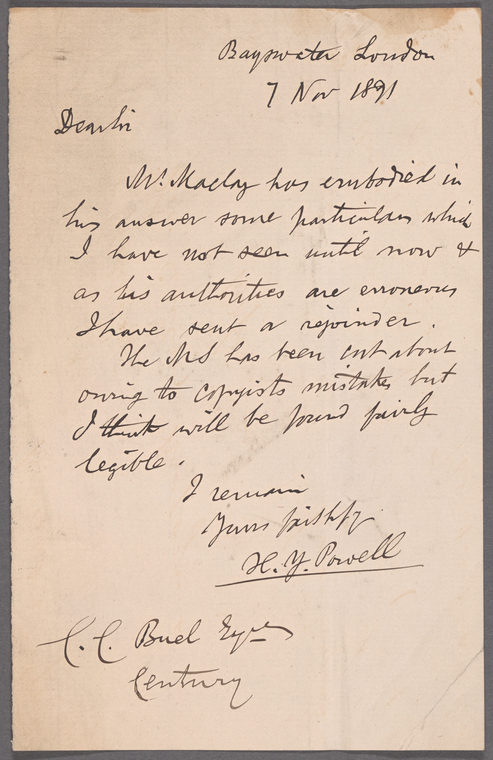 Bayswater London
7 Nov 1891
Dear Sir
Mr. Maclay has embodied in
his answer some particulars which
I have not seen until now &
as his authorities are erroneous
I have sent a rejoinder.
The MS has been cut about
owing to copyists mistakes but
I think will be found fairly
legible.
I remain
Yours faithfy
H. Y. Powell
C. C. Buel Esqre
Century